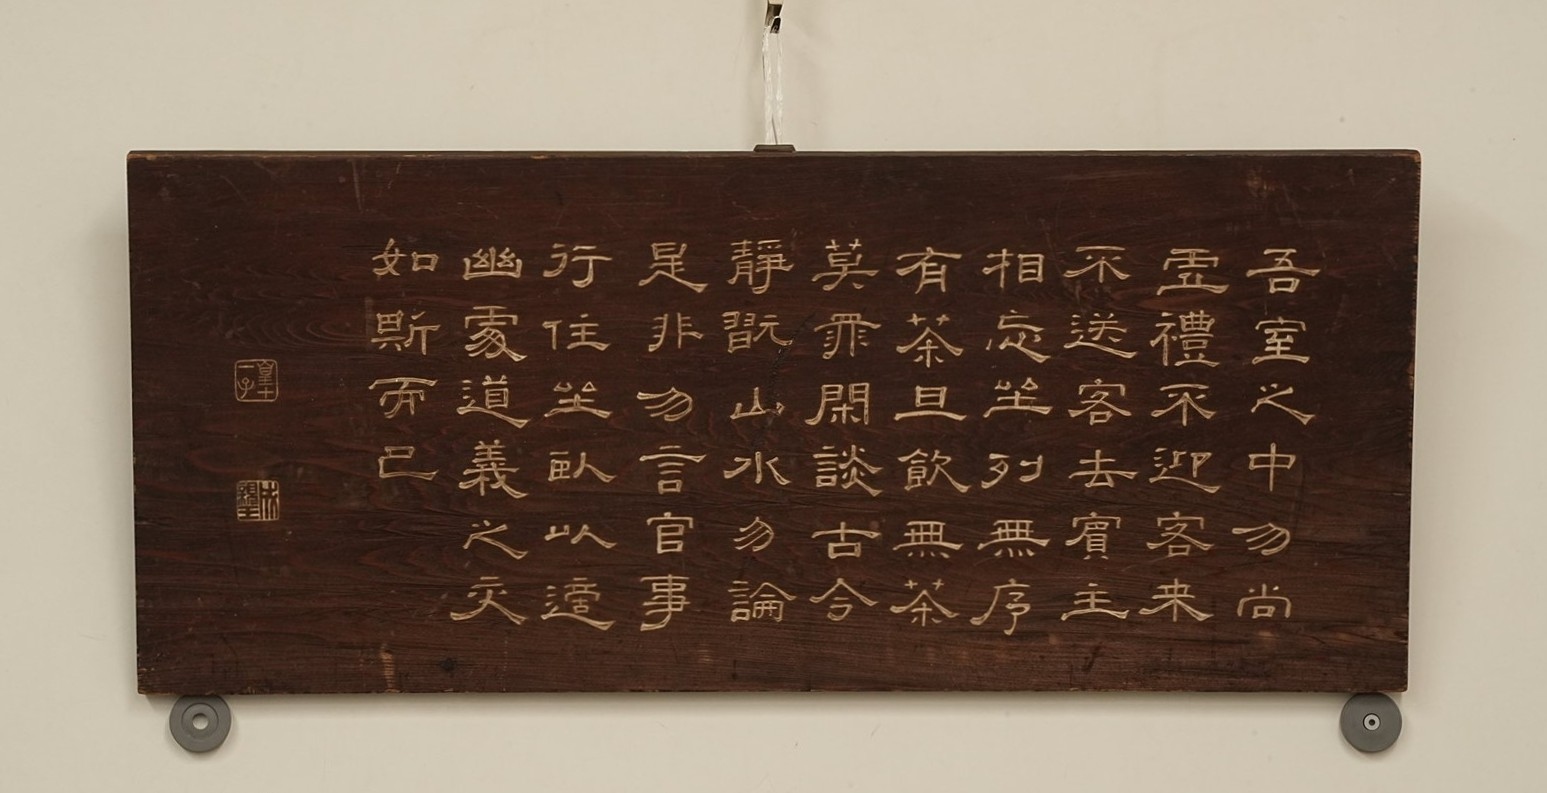 吾室之中勿尚
虛禮不迎客来
不送客去賓主
相忘坐列無序
有茶旦飲無茶
莫罪閑談古今
靜翫山水勿論
是非勿言官事
行住坐臥以適
幽處道義之交
如斯而已